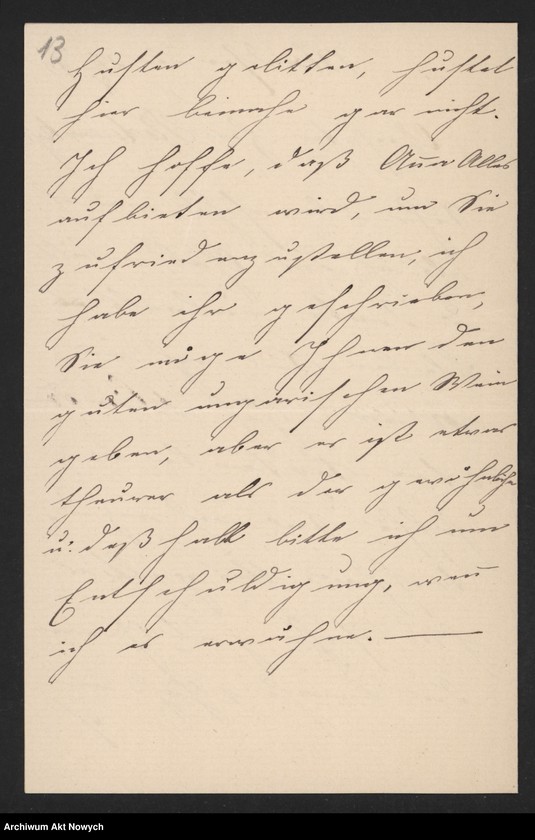 13
Husten gelitten, hustet
hier beinahe gar nicht.
Ich hoffe, daß Anna Alles
aufbieten wird, um Sie
zufriedenzustellen, ich
habe ihr geschrieben,
Sie möge Ihnen den
guten ungarischen Wein
geben, aber er ist etwas
theurer als der gewöhnliche
u. deßhalb bitte ich um
Entschuldigung, wenn̄
ich es erwähne. —
Archiwum Akt Nowych